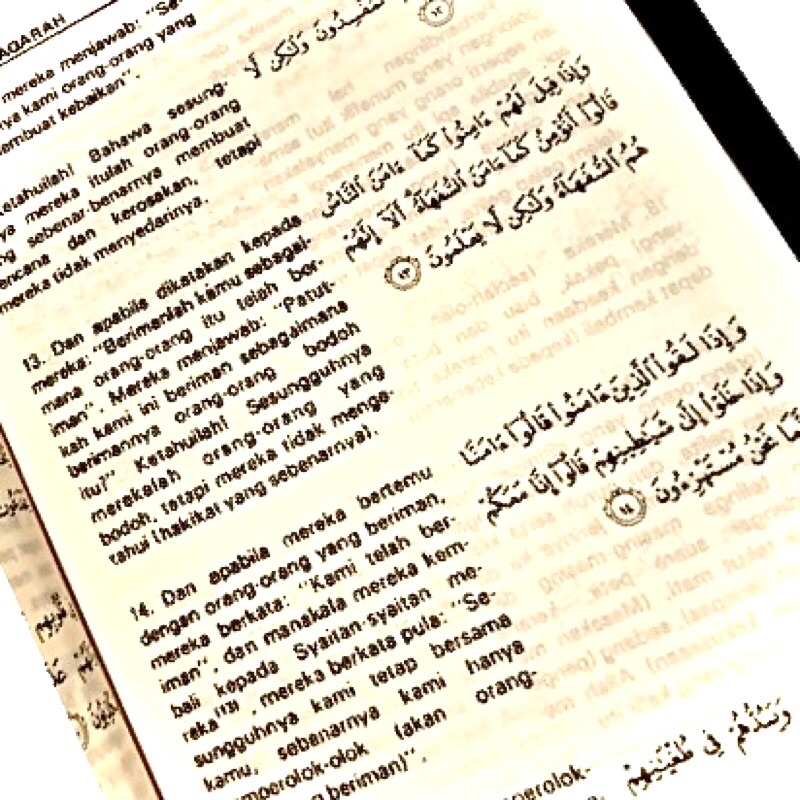 AQARAH
mereka menjawab: "Se-
nya kami orang-orang yang
membuat kebaikan".
Ketahuilah! Bahawa sesung-
ya mereka itulah orang-orang
ng sebenar-benarnya membuat
encana dan kerosakan, tetapi
mereka tidak menyedarinya.
وَلَٰكِن لَّا
13. Dan apabila dikatakan kepada
mereka: "Berimanlah kamu sebagai-
mana orang-orang itu telah ber-
iman". Mereka menjawab: "Patut-
kah kami ini beriman sebagaimana
berimannya orang-orang bodoh
itu?" Ketahuilah! Sesungguhnya
merekalah orang-orang yang
bodoh, tetapi mereka tidak menge-
tahui (hakikat yang sebenarnya).
وَإِذَا قِيلَ لَهُمْ ءَامِنُوا۟ كَمَآ ءَامَنَ ٱلنَّاسُ
قَالُوٓا۟ أَنُؤْمِنُ كَمَآ ءَامَنَ ٱلسُّفَهَآءُ أَلَآ إِنَّهُمْ
هُمُ ٱلسُّفَهَآءُ وَلَٰكِن لَّا يَعْلَمُونَ ١٣
14. Dan apabila mereka bertemu
dengan orang-orang yang beriman,
mereka berkata: "Kami telah ber-
iman", dan manakala mereka kem-
bali kepada Syaitan-syaitan me-
reka, mereka berkata pula: "Se-
sungguhnya kami tetap bersama
kamu, sebenarnya kami hanya
mperolok-olok (akan orang-
beriman)".
وَإِذَا لَقُوا۟ ٱلَّذِينَ ءَامَنُوا۟ قَالُوٓا۟ ءَامَنَّا
وَإِذَا خَلَوْا۟ إِلَىٰ شَيَٰطِينِهِمْ قَالُوٓا۟ إِنَّا مَعَكُمْ
نَحْنُ مُسْتَهْزِءُونَ ١٤
mperolok-
وَيَمُدُّهُمْ فِى طُغْيَٰنِهِمْ